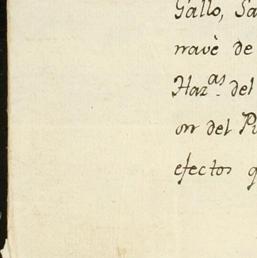 Gallo, Sa
navè de
Haz.as del
on del P
efectos q